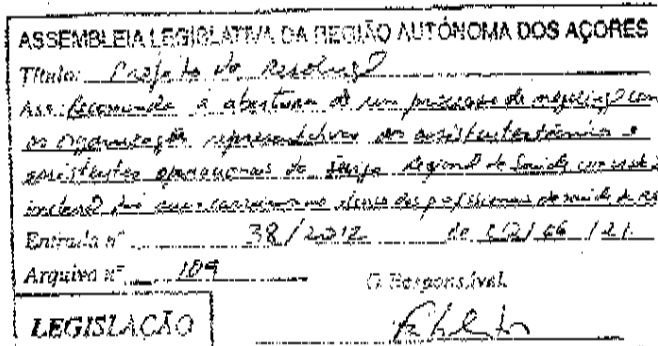 ASSEMBLEIA LEGISLATIVA DA REGIÃO AUTÓNOMA DOS AÇORES
Título: Projeto de Resolução
Ass.: Recomenda a abertura de um processo de negociação com
as organizações representativas dos assistentes técnicos e
assistentes operacionais do Serviço Regional de Saúde com vista à
das carreiras dos profissionais de saúde
Entrada nº 38/2012 de
Arquivo nº 109
O Responsável
LEGISLAÇÃO